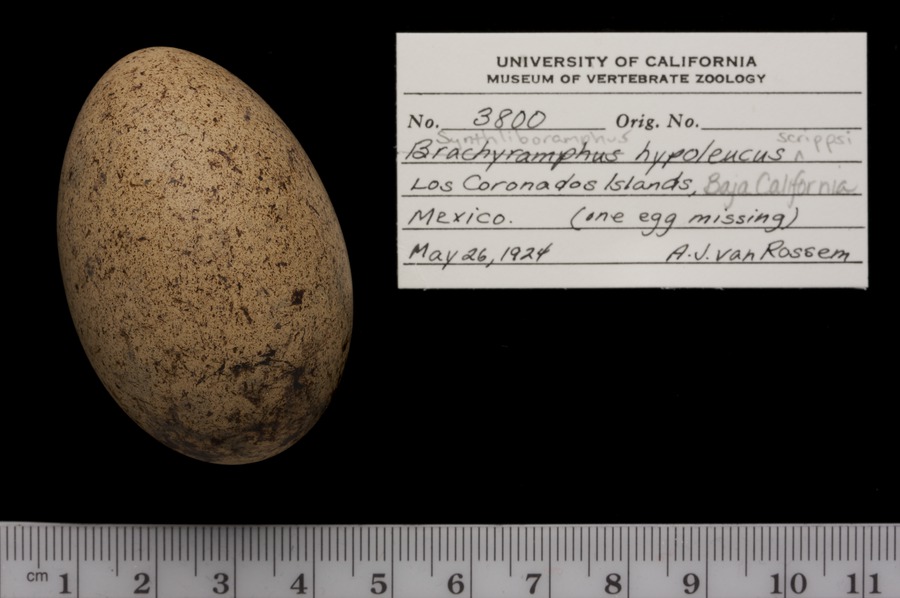 UNIVERSITY OF CALIFORNIA
MUSEUM OF VERTEBRATE ZOOLOGY
No. 3800 Orig. No.
Synthliboramphus scrippsi
Brachyramphus hypoleucus ^
Los Coronados Islands, Baja California
Mexico. (one egg missing)
May 26, 1924 A.J. van Rossem
cm 1 2 3 4 5 6 7 8 9 10 11